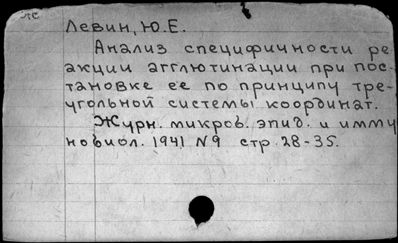 Левин, Ю.Е.
Анализ специфичности ре
акции агглютинации при пос-
тановке ее по принципу тре-
угольной системы координат.
Журн. микроб. эпид. и имму
нобиол. 1941 N9 стр. 28-35.